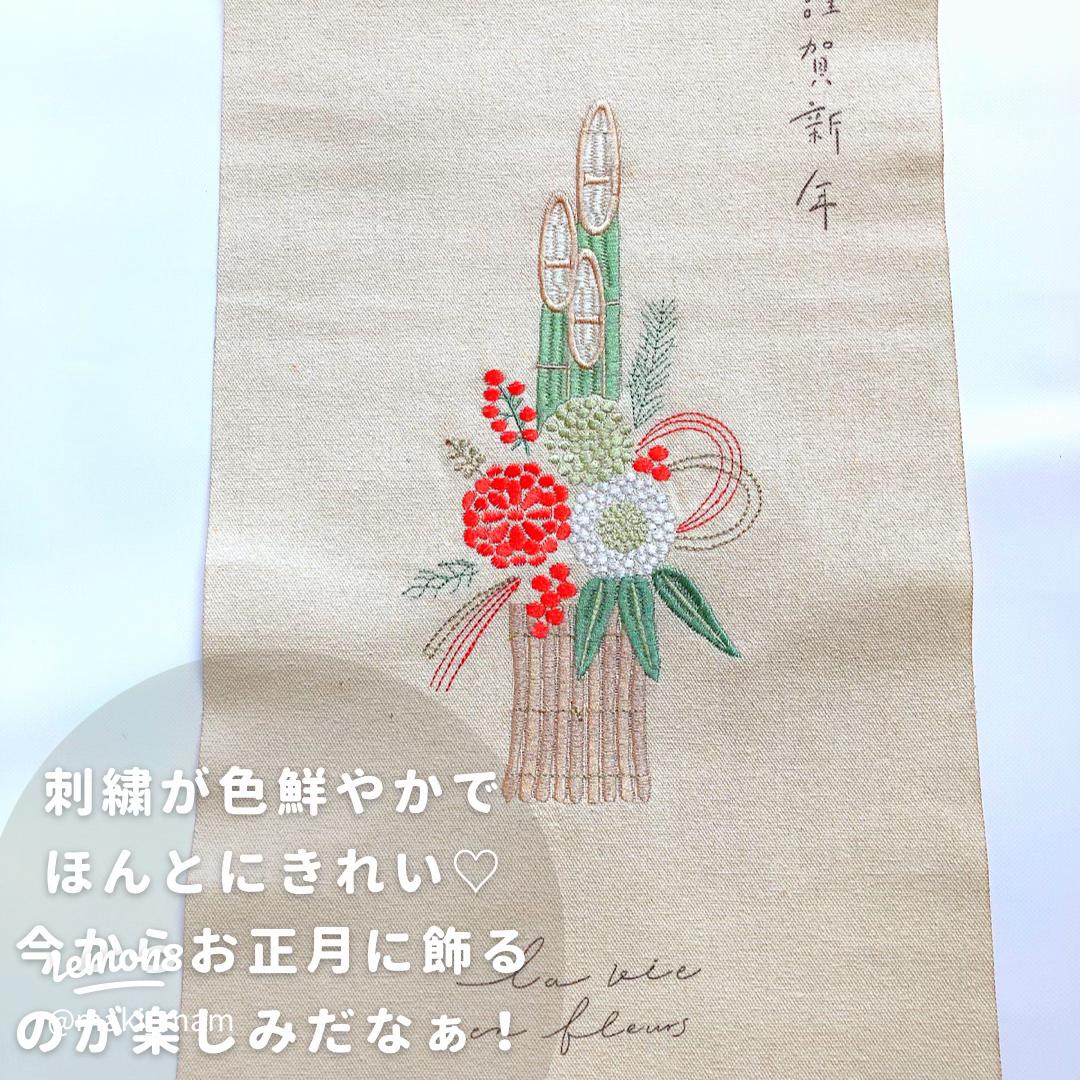 謹賀新年
刺繍が色鮮やかで
ほんとにきれい♡
今からお正月に飾る
のが楽しみだなぁ！
la vie
en fleurs
lemon8